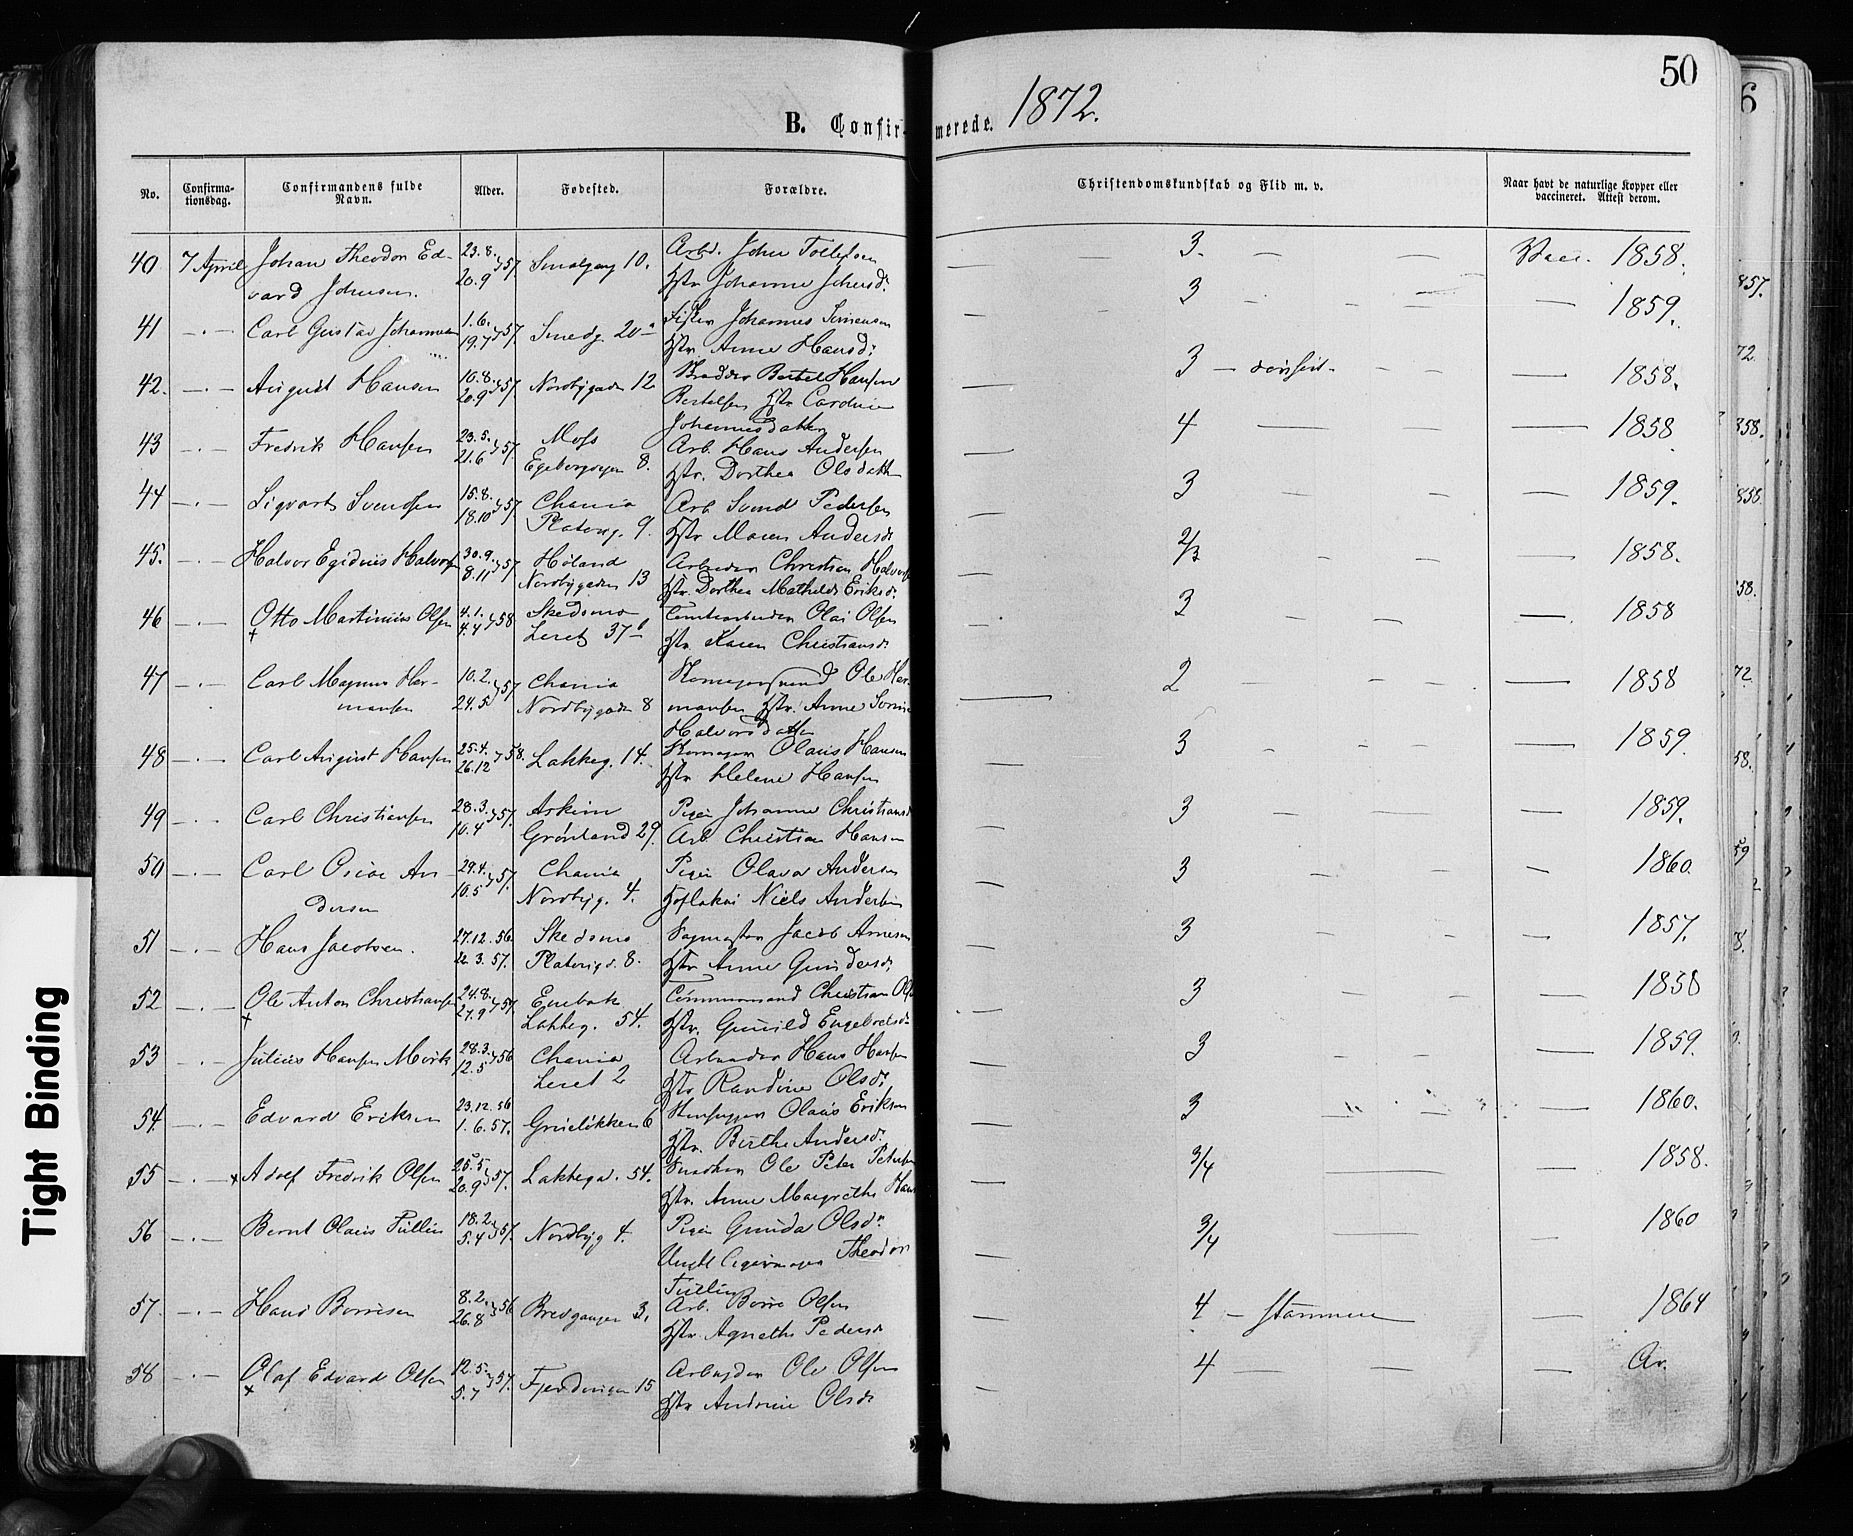 50
1872.
B. Confirmerede.
No. Confirmationsdag. Confirmandens fulde Navn. Alder. Fødested. Forældre. Christendomskundskab og Flid m. v. Naar havt de naturlige Kopper eller vaccineret. Attest derom.
40 7 April Johan Theodor Ed- 23.8. 57. Smalgang 10. Arbd. John Tollefsen 3. — — Vacc. 1858.
vard Johnsen. 20.9 Hstr Johanne Johnsd.
41 —.— Carl Gustav Johannesen 1.6. 57. Smedg. 20 Fisker Johannes Simensen 3 — — — — 1859.
19.7 Hstr. Anne Hansd:
42. —.— August Hansen 10.8. 57. Nordbygaden 12 Bertel Hansen 3 — — — — 1858.
20.9 Bertelsen Hstr
Johannesdatter
43 —.— Fredrik Hansen 23.5. 57. Moss Arb. Hans Andersen 4 — — — 1858
21.6 Egebergveien 8. Hstr. Dorthea Olsdatter
44 —.— Sigvart Svendsen 15.8. 57. Chania Arb Svend Pedersen 3 — — — 1859.
18.10 Platoug. 9. Hstr Maren Andersd
45. —.— Halvor Egidius Halvors 30.9. 57 Høland Arbeider Christian Halvorsen 2/3 — — — 1858.
8.11 Nordbygaden 13 Hstr. Dorthea Mathilde Eriksd.
46 —.— Otto Martinius Olsen 4.1. 58 Skedsmo Tomtearbeider Olai Olsen 3 — — — 1858
+ 4.4 Leret 37 Hstr Karen Christiansd:
47 —.— Carl Magnus Her- 10.2. 57. Chania Ole Her- 2 — — — — 1858
mansen 24.5 Nordbygaden 8 mansen Hstr. Anne
Halvorsdatter
48 —.— Carl August Hansen 25.4. 58. Lakkeg. 14. Olaus Hansen 3 — — — 1859.
26.12 Hstr Helene Hansen
49 —.— Carl Christiansen 28.3. 57. Askim Pigen Johanne Christiansd 3 — — — 1859.
10.4 Grønland 29. Arb. Christian Hansen
50 —.— Carl Oscar An- 29.4. 57. Chania Pigen Olava Andersen 3 — — — 1860.
dersen 10.5 Nordbyg. 4. Hoflakai Niels Andersen
51 —.— Hans Jacobsen. 27.12.56. Skedsmo Sagmester Jacob Arnesen 3 — — — 1857.
22.3.57. Platougd. 8. Hstr Anne Gundersd.
52 —.— Ole Anton Christiansen 24.8. 57. Enebak Tømmermand Christian Ols 3 — — — 1858
+ 27.9 Lakkeg. 54. Hstr. Gunild Engebretsd
53 —.— Julius Hansen Mørk 28.3. 56 Chania Arbeider Hans Hansen 3 — — — 1859.
12.5 Leret 2 Hstr Randine Olsd.
54. —.— Edvard Eriksen 23.12.56 Grueløkken 6 Olaus Eriksen 3 — — 1860.
1.6.57. Hstr. Birthe Andersd.
55 —.— × Adolf Fredrik Olsen 25.5. 57. Lakkegd. 54. Snedker Ole Peter Petersen 3/4 — — 1858.
20.9 Hstr. Anne Margrethe Hans
56 —.— Bernt Olaus Tullin 18.2. 57. Nordbyg 4. Pigen Gunda Olsd. 3/4 — — 1860
5.4 Ungkl Cigarmager Theodor
Tullin
57. —.— Hans Børresen 8.2. 56 Bredgangen 3. Arb. Børre Olsen 4 — stammer — — 1864
26.8 Hstr. Agnethe Pedersd
58 —.— Olaf Edvard Olsen 12.5. 57. Fjerdingen 15 Arbeider Ole Olsen 4 — — — — Ar.
+ 5.7 Hstr Andrine Olsd
Tight Binding